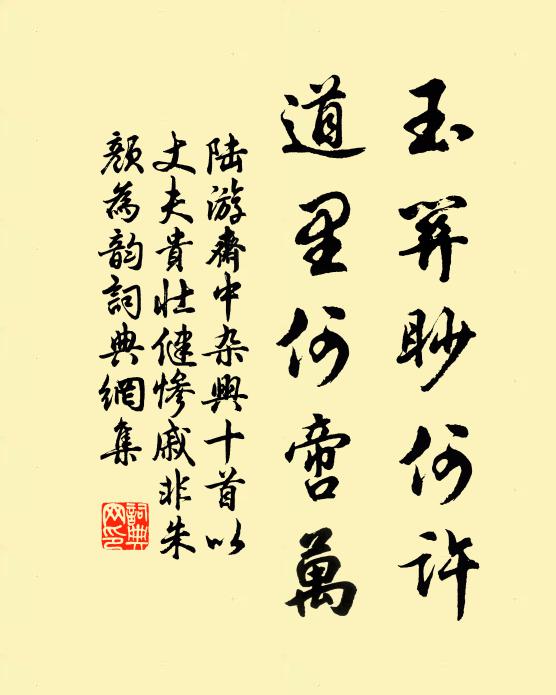 玉關眇何許
道里何啻萬
陸游齋中杂興十首以
丈夫貴壯健慘戚非朱
顏為韵詞典網集
詞典
网印